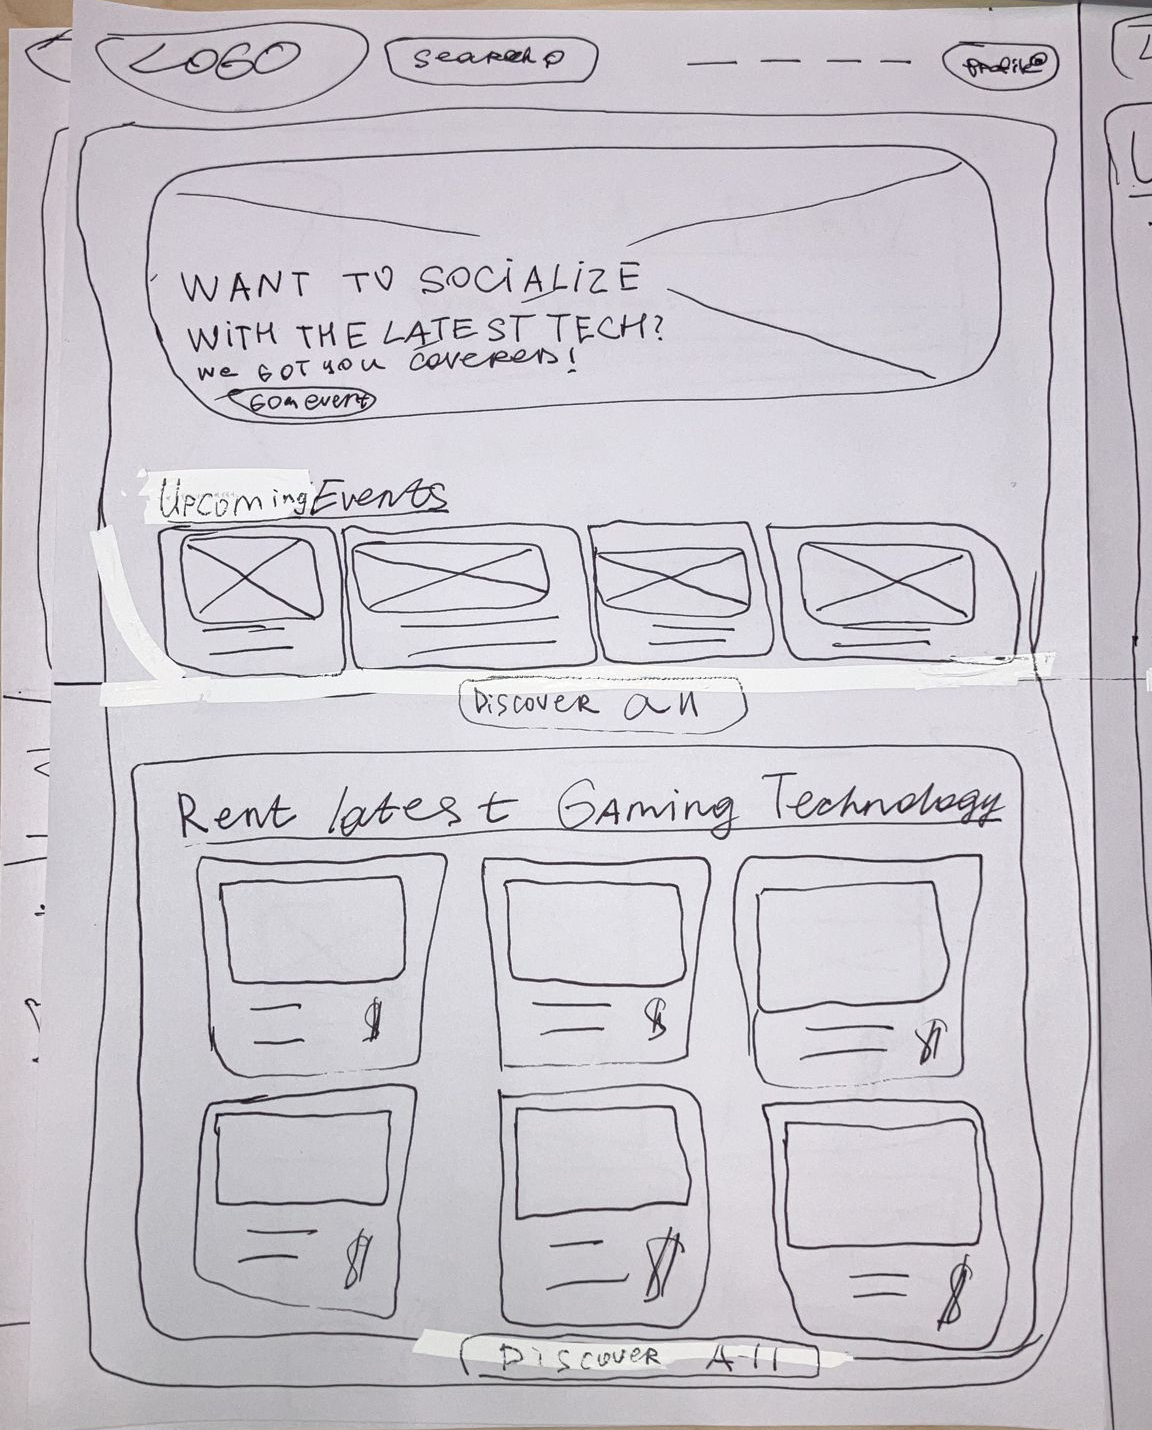 LOGO
Search
Profile
WANT TO SOCIALIZE
WITH THE LATEST TECH?
We GOT you COVERED!
Upcoming Events
Discover all
Rent latest Gaming Technology
$ $ $
$ $ $
Discover All